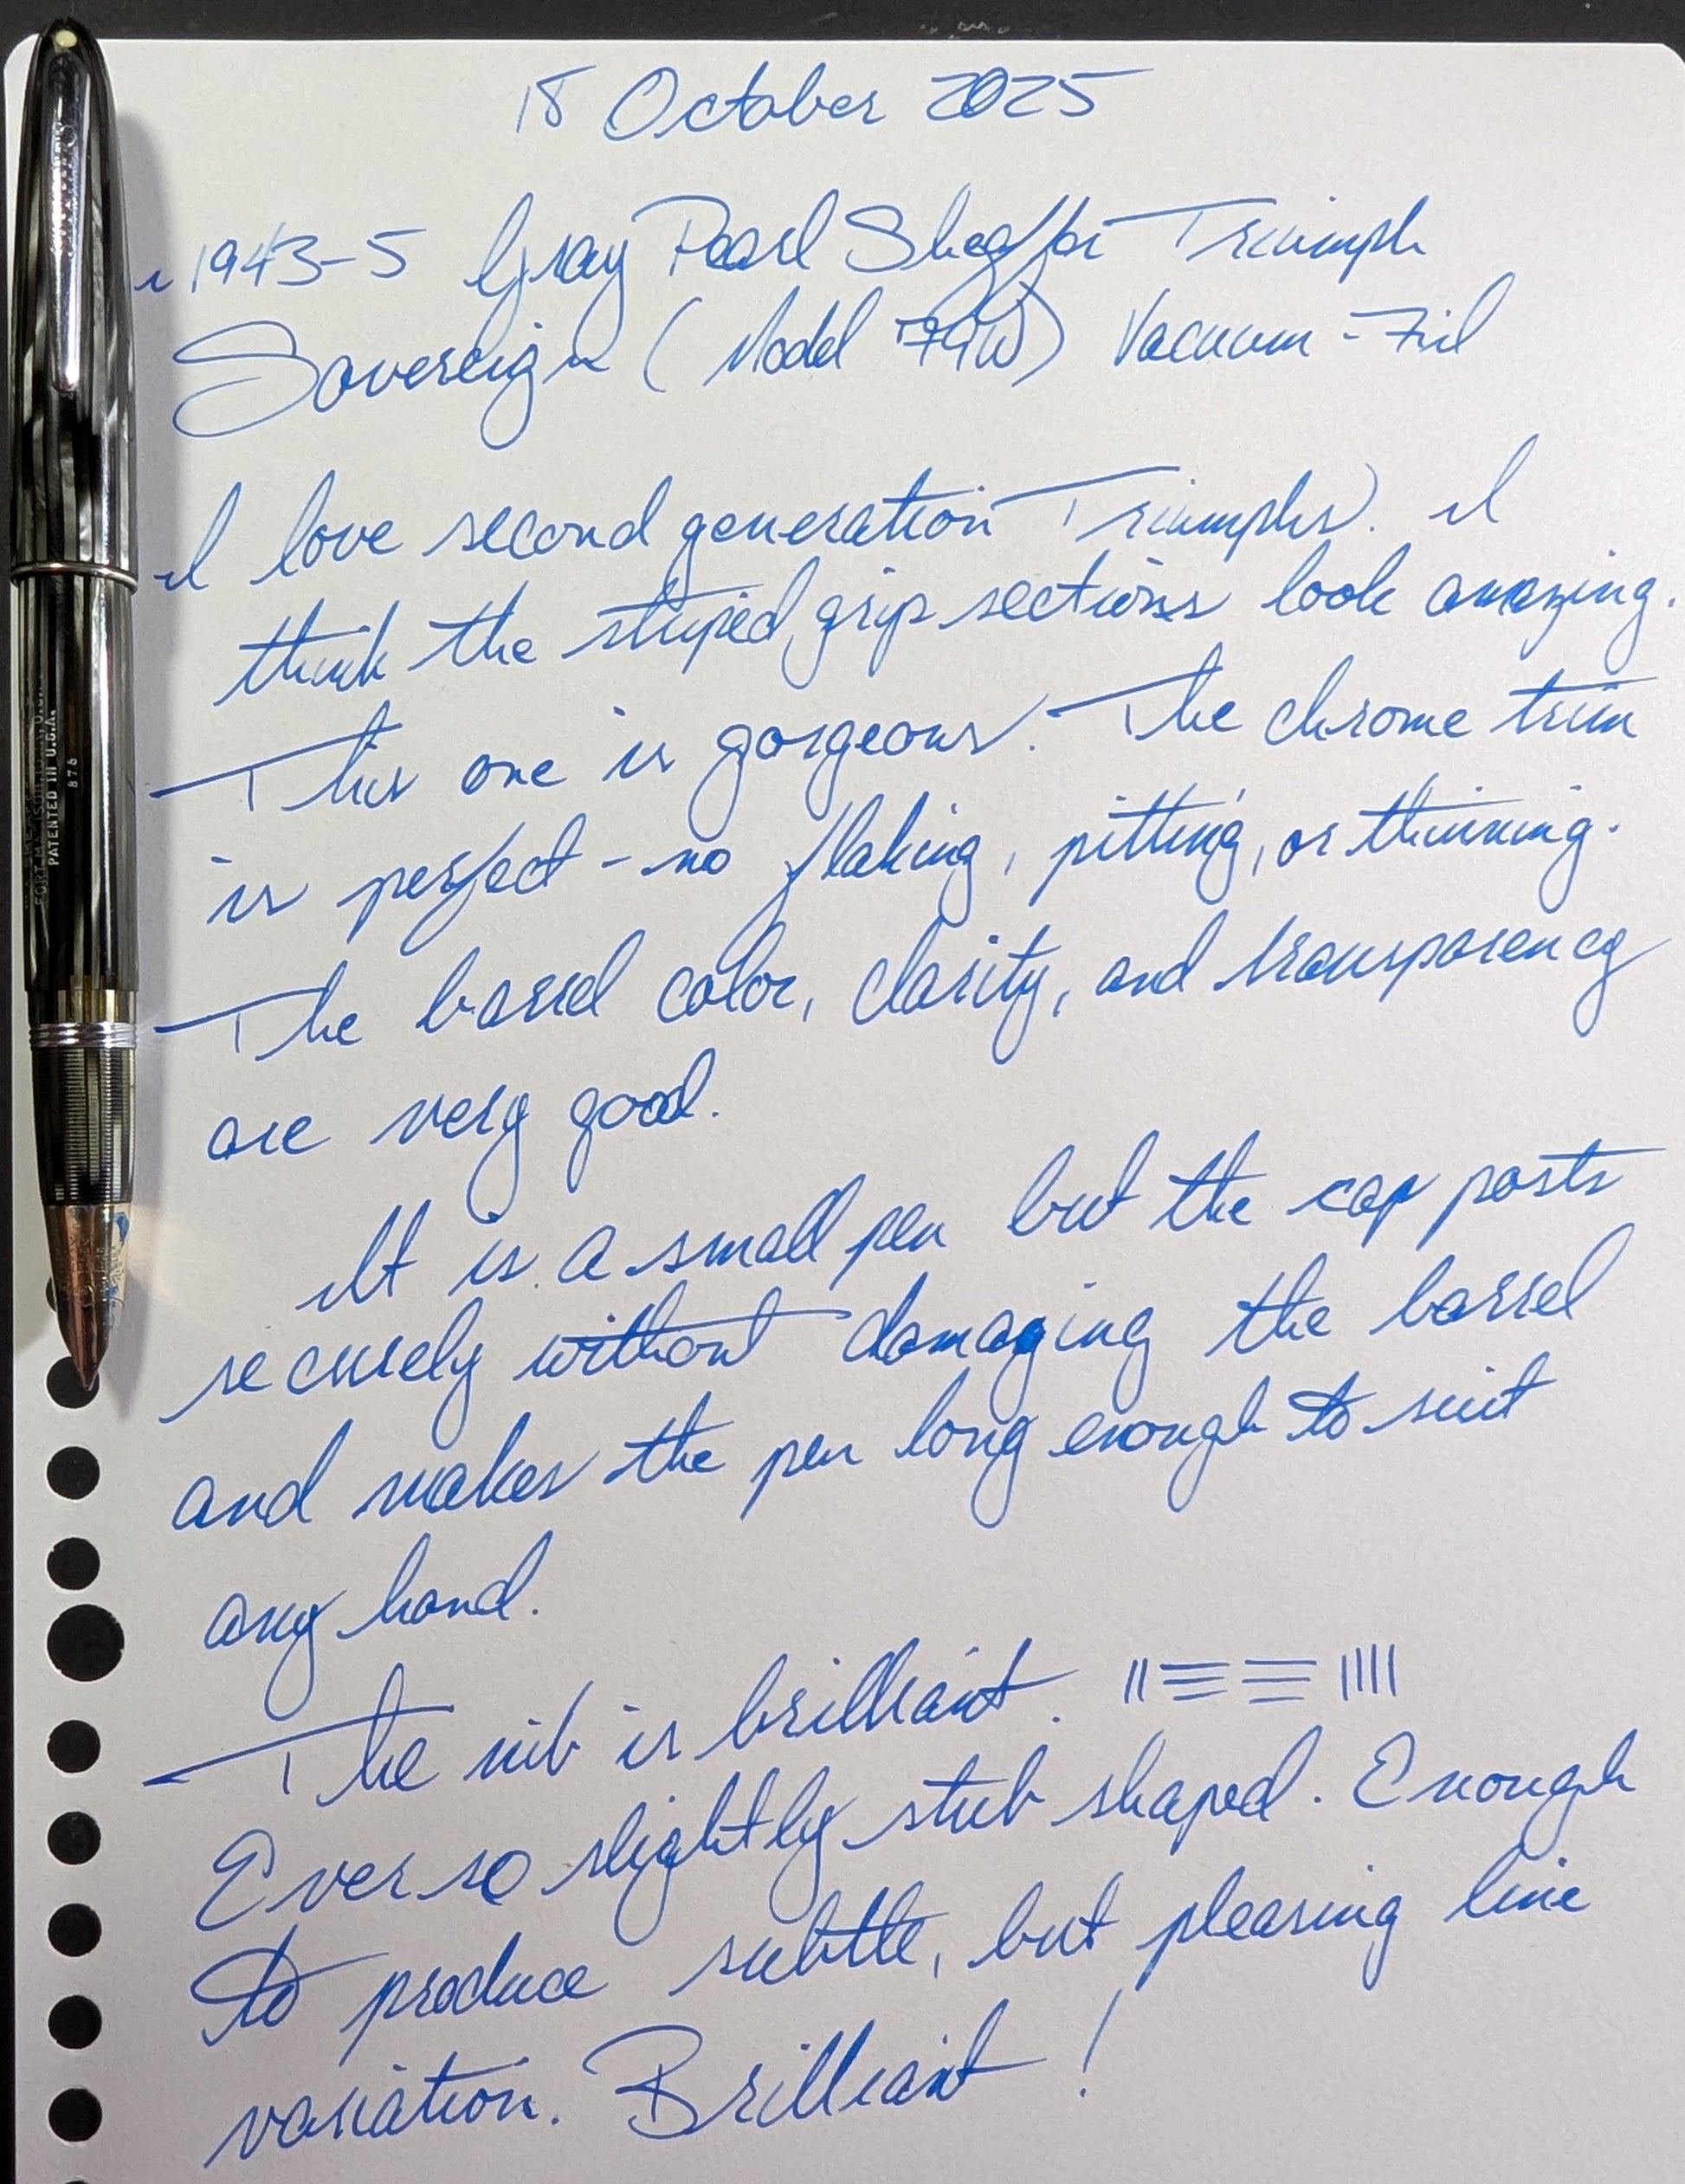 18 October 2025
c 1943-5 Gray Pearl Sheaffer Triumph
Sovereign (Model 79W) Vacuum-Fil
I love second generation Triumphs. I
think the striped grip sections look amazing.
This one is gorgeous. The chrome trim
is perfect - no flaking, pitting, or thinning.
The barrel color, clarity, and transparency
are very good.
It is a small pen but the cap posts
securely without damaging the barrel
and makes the pen long enough to suit
any hand.
The nib is brilliant.
Ever so slightly stub shaped. Enough
to produce subtle, but pleasing line
variation. Brilliant!
SHEAFFER'S
FORT MADISON, IOWA, U.S.A.
PATENTED IN U.S.A.
875